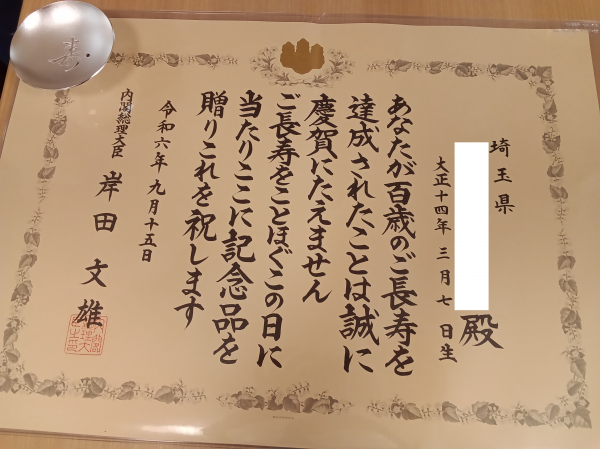 埼玉県
殿
大正十四年 三月七日生
あなたが百歳のご長寿を
達成されたことは誠に
慶賀にたえません
ご長寿をことほぐこの日に
当たりここに記念品を
贈りこれを祝します
令和六年九月十五日
内閣総理大臣 岸田文雄
寿